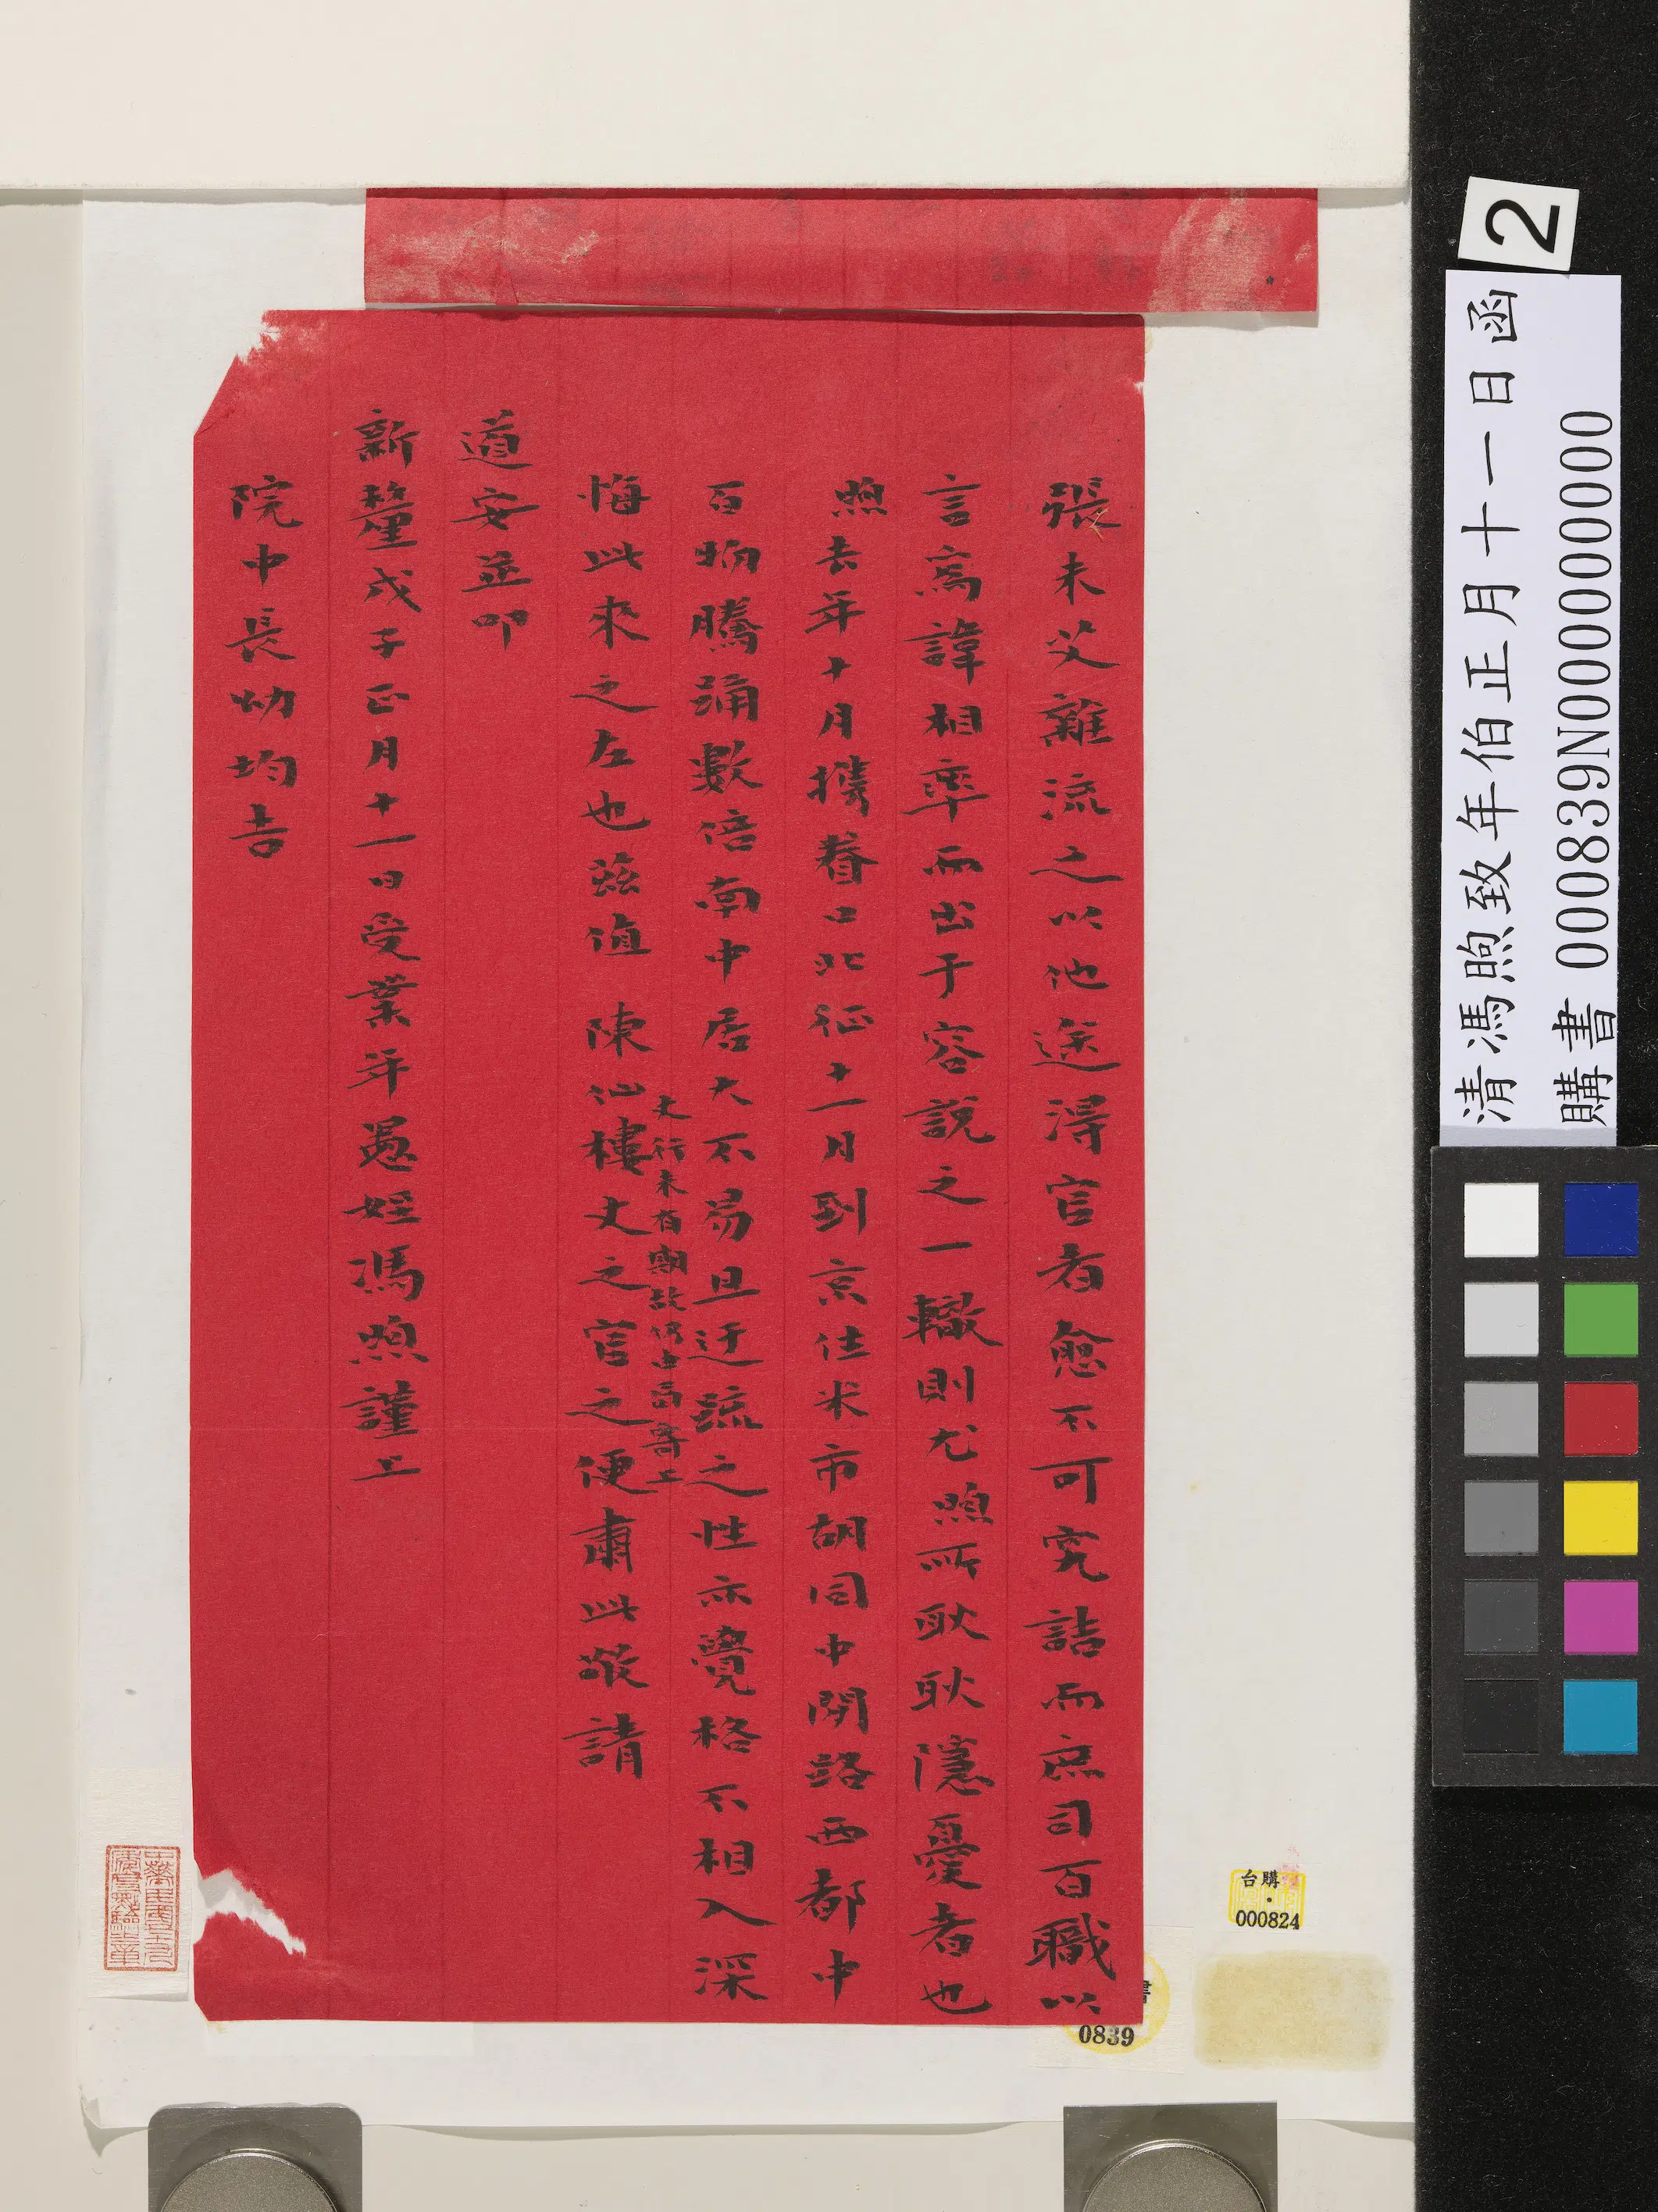 張未艾雜流之以他途得官者愈不可究詰而庶司百職以
言為諱相率而出于容說之一轍則尤煦所耿耿隱憂者也
煦去年十月攜眷口北征十一月到京住米市胡同中間路西都中
百物騰踊數倍南中居大不易且迂疏之性亦覺格不相入深
悔此來之左也茲值 陳仙樓丈之官之便肅此敬請
丈行未有期故仍由局寄上
道安並叩
新釐戊子正月十一日受業年愚姪馮煦謹上
院中長幼均吉
2
清馮煦致年伯正月十一日函
購書 000839N000000000
台購
000824
0839